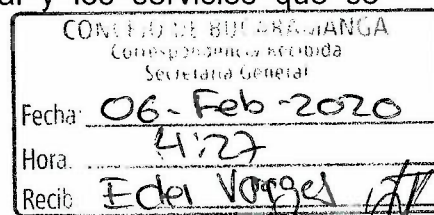 ar y los servicios que se
CONCEJO DE BUCARAMANGA
Correspondencia Recibida
Secretaria General
Fecha: 06-Feb-2020
Hora. 4:27
Recib Eder Vargas